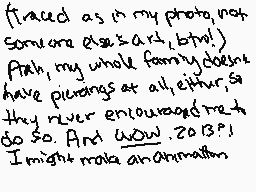 (traced as in my photo, not
someone else's art, btw!)
Aah, my whole family doesn't
have piercings at all, either, so
they never encouraged me to
do so. And wow. 2013?!
I might make an animation